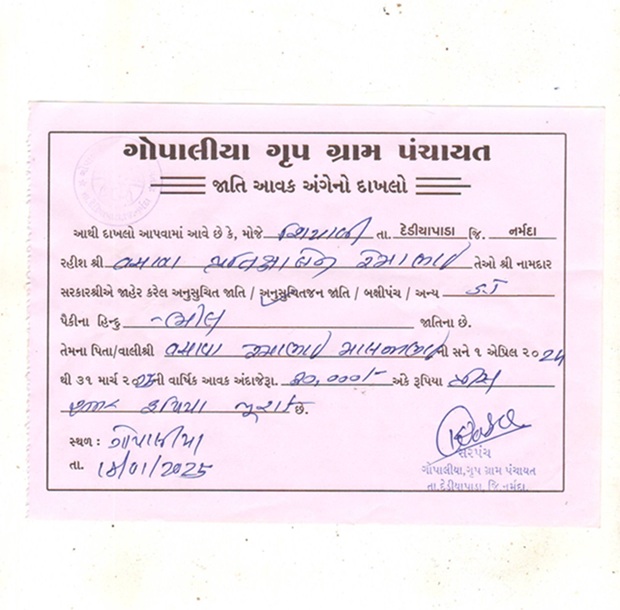 ગોપાલીયા ગૃપ ગ્રામ પંચાયત
જાતિ આવક અંગેનો દાખલો
આથી દાખલો આપવામાં આવે છે કે, મોજે તા. દેડીયાપાડા જિ. નર્મદા
રહીશ શ્રી વસાવા તેઓ શ્રી નામદાર
સરકારશ્રીએ જાહેર કરેલ અનુસુચિત જાતિ / અનુસુચિતજન જાતિ / બક્ષીપંચ / અન્ય S.T
પૈકીના હિન્દુ ભીલ જાતિના છે.
તેમના પિતા/વાલીશ્રી વસાવા ની સને ૧ એપ્રિલ ૨૦24
થી ૩૧ માર્ચ ૨૦25ની વાર્ષિક આવક અંદાજેરૂા. 20,000/- અંકે રૂપિયા વીસ
હજાર રૂપિયા પુરા છે.
સ્થળ : ગોપાલીયા
તા. 18/01/2025
સરપંચ
ગોપાલીયા,ગૃપ ગ્રામ પંચાયત
તા.દેડીયાપાડા, જિ.નર્મદા.